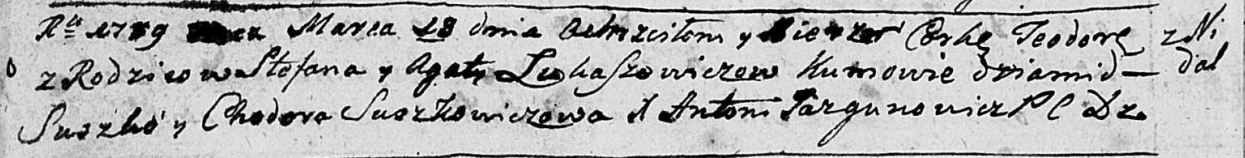 Rꝏ 1789 Marca 18 dnia Ochrzciłem y Bierzm Corkę Teodorę z Ni
z Rodzicow Stefana y Agaty Łukaszewiczow Kumowie Dziamid — dal
Suszko y Chodora Suszkowiczowa X Antoni Jazgunowicz P C Dz.